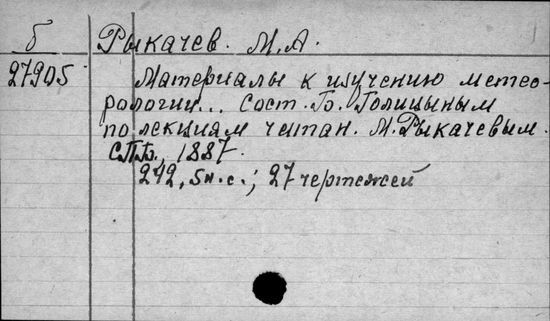 б Рыкачев. М.А.
27905 Материалы к изучению метео-
рологии... Сост. Б. Голицыным
по лекциям читан. М. Рыкачевым.
С.П.Б., 1887.
242, 5н.с.; 27 чертежей